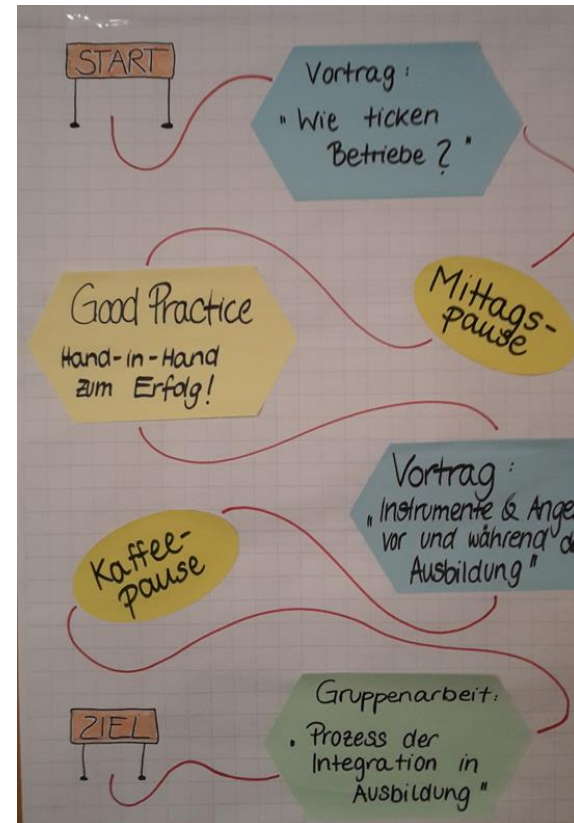 START
Vortrag:
"Wie ticken
Betriebe?"
Mittags-
pause
Good Practice
Hand-in-Hand
zum Erfolg!
Vortrag:
"Instrumente & Ange
vor und während d
Ausbildung"
Kaffee-
pause
Gruppenarbeit:
. Prozess der
Integration in
Ausbildung"
ZIEL